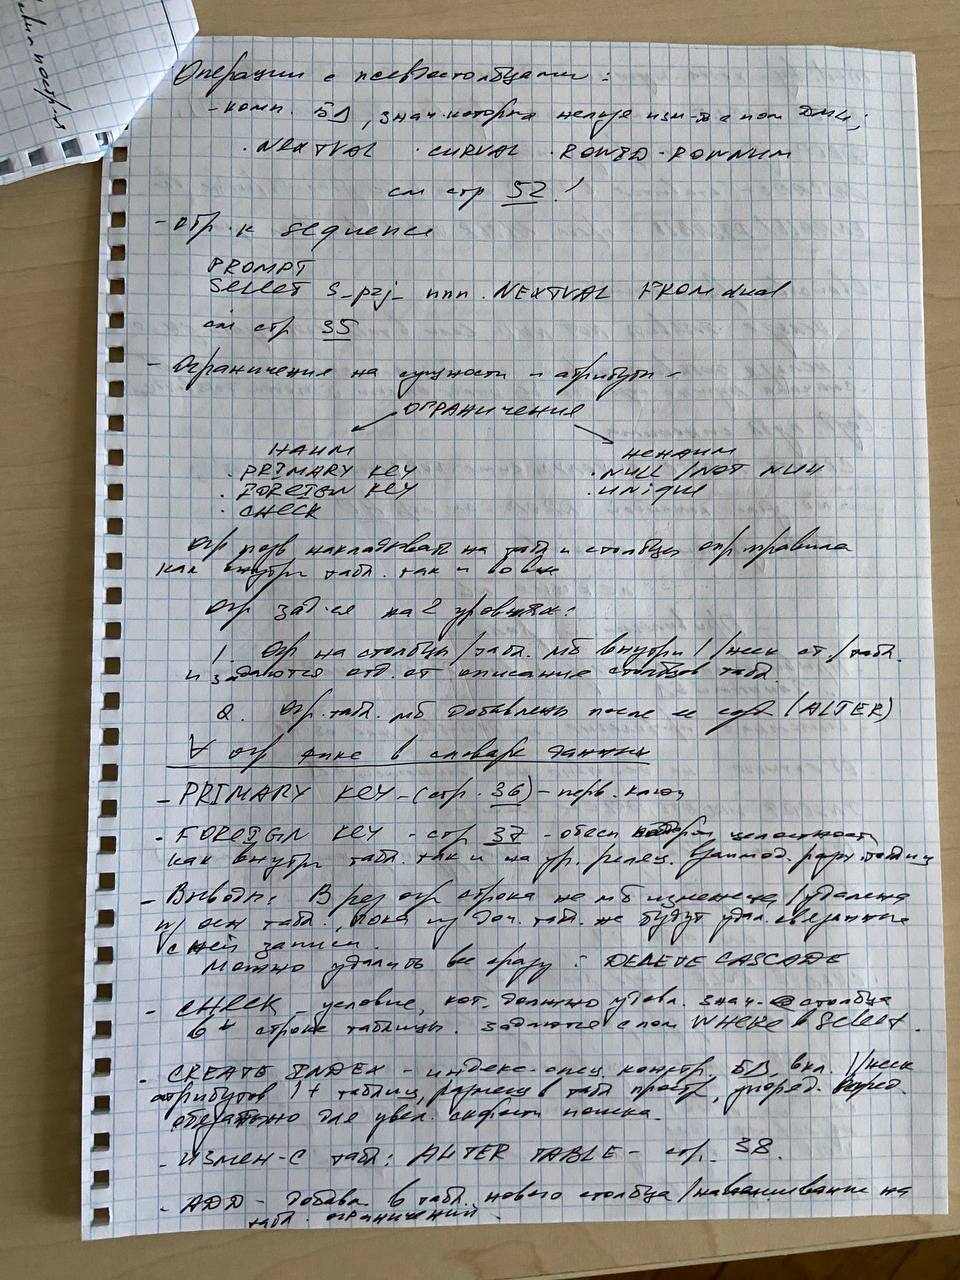 Операции с псевдостолбцами:
- комп. БД, знач. которых нельзя изм-ть с пом DML;
· NEXTVAL · CURVAL · ROWID · ROWNUM
см стр 52!
- обр. к sequence
PROMPT
Select s_prj_ nnn .NEXTVAL FROM dual
см стр 35
- Ограничения на сущности и атрибуты -
ОГРАНИЧЕНИЯ
НАИМ НЕНАИМ
· PRIMARY KEY · NULL / NOT NULL
· FOREIGN KEY · UNIQUE
· CHECK
Огр позв накладывать на табл и столбцы опр правила
как внутри табл. так и вовне
Огр зад-ся на 2 уровнях:
1. Огр на столбцы / табл. мб внутри 1 / неск ст. / табл.
и задаются отд. от описания столбцов табл.
2. Огр. табл. мб добавлены после ее созд (ALTER)
∀ огр фикс в словаре данных
- PRIMARY KEY - (стр. 36) - перв. ключ
- FOREIGN KEY - стр 37 - обесп целостность
как внутри табл. так и на ур. реляц. взаимод. разн. таблиц
- Выводы: В рез огр строка не мб изменена / удалена
из осн табл., пока из доч. табл. не будут удал. связанные
с ней записи.
Можно удалить все сразу: DELETE CASCADE
- CHECK - условие, кот. должно удовл. знач-е столбца
в ∀ строке таблицы. задаются с пом WHERE в Select.
- CREATE INDEX - индекс-спец констр. БД, вкл. 1/неск
атрибутов 1+ таблиц, размещ в табл простр, упоряд.
для увел. скорости поиска.
- Измен-е табл: ALTER TABLE - стр. 38.
- ADD - добавл. в табл. нового столбца / навешивание на
табл. ограничений.